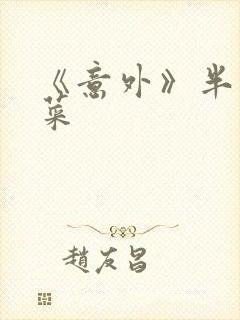 《意外》半
菜
趙友昌